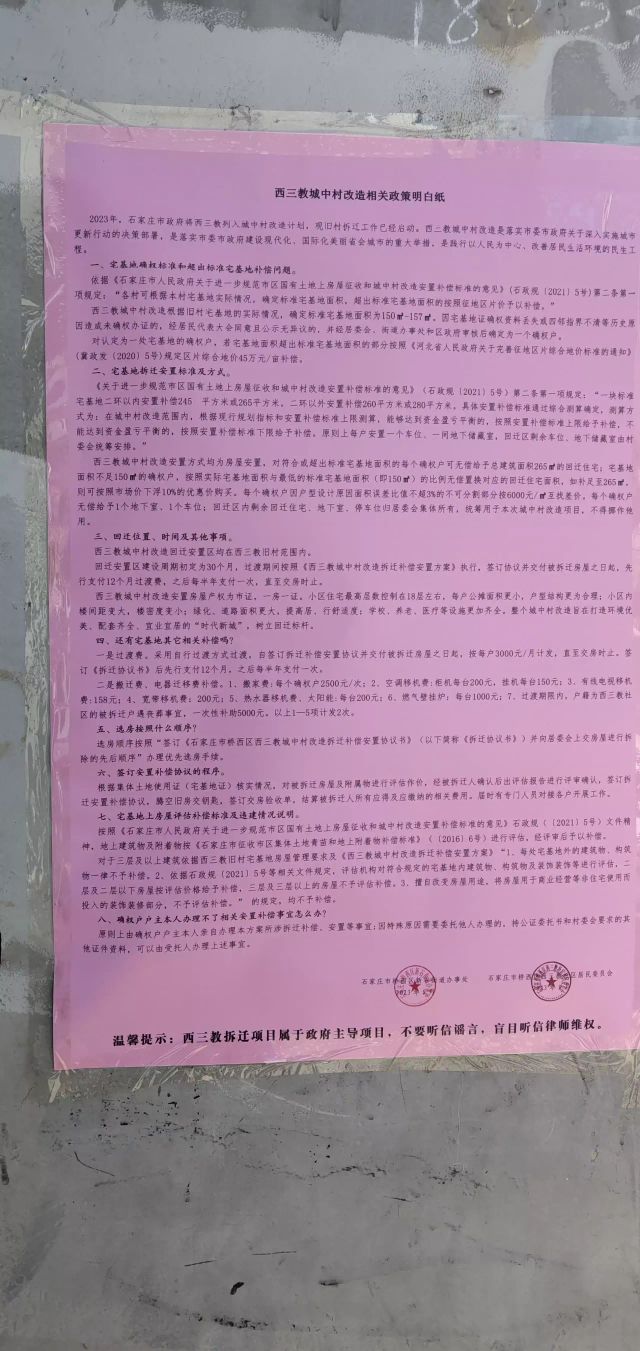 西三教城中村改造相关政策明白纸
2023年，石家庄市政府将西三教列入城中村改造计划，现旧村拆迁工作已经启动。西三教城中村改造是落实市委市政府关于深入实施城市
更新行动的决策部署，是落实市委市政府建设现代化、国际化美丽省会城市的重大举措，是践行以人民为中心、改善居民生活环境的民生工
程。
一、宅基地确权标准和超出标准宅基地补偿问题。
依据《石家庄市人民政府关于进一步规范市区国有土地上房屋征收和城中村改造安置补偿标准的意见》（石政规〔2021〕5号）第二条第一
项规定：“各村可根据本村宅基地实际情况，确定标准宅基地面积，超出标准宅基地面积的按照征地区片价予以补偿。”
西三教城中村改造根据旧村宅基地的实际情况，确定标准宅基地面积为150㎡-157㎡，因宅基地证确权资料丢失或四邻指界不清等历史原
因造成未确权办证的，经居民代表大会同意且公示无异议的，并经居委会、街道办事处和区政府审核后确定为一个确权户。
对认定为一处宅基地的确权户，若宅基地面积超出标准宅基地面积的部分按照《河北省人民政府关于完善征地区片综合地价标准的通知》
（冀政发（2020）5号）规定区片综合地价45万元/亩补偿。
二、宅基地拆迁安置标准及方式。
《关于进一步规范市区国有土地上房屋征收和城中村改造安置补偿标准的意见》（石政规〔2021〕5号）第二条第一项规定：“一块标准
宅基地二环以内安置补偿245 平方米或265平方米，二环以外安置补偿260平方米或280平方米，具体安置补偿标准通过综合测算确定，测算方
式为：在城中改造范围内，根据现行规划指标和安置补偿标准上限测算，能够达到资金盈亏平衡的，按照安置补偿标准上限给予补偿，不
能达到资金盈亏平衡的，按照安置补偿标准下限给予补偿。原则上每户安置一个车位、一间地下储藏室，回迁区剩余车位、地下储藏室由村
委会统筹安排。”
西三教城中村改造安置方式均为房屋安置，对符合或超出标准宅基地面积的每个确权户可无偿给予总建筑面积265㎡的回迁住宅；宅基地
面积不足150㎡的确权户，按照实际宅基地面积与最低的标准宅基地面积（即150㎡）的比例无偿置换对应的回迁住宅面积，如补足至265㎡，
则可按照市场价下浮10%的优惠价购买。每个确权户因户型设计原因面积误差比值不超3%的不可分割部分按6000元/㎡互找差价，每个确权户
无偿给予1个地下室、1个车位；回迁区内剩余回迁住宅、地下室、停车位归居委会集体所有，统筹用于本次城中村改造项目，不得挪作他
用。
三、回迁位置、时间及其他事项。
西三教城中村改造回迁安置区均在西三教旧村范围内。
回迁安置区建设周期初定为30个月，过渡期间按照《西三教城中村改造拆迁补偿安置方案》执行，签订协议并交付被拆迁房屋之日起，先
行支付12个月过渡费，之后每半年支付一次，直至交房时止。
西三教城中村改造安置房屋产权为市证，一房一证。小区住宅最高层数控制在18层左右，每户公摊面积更小，户型结构更为合理；小区内
楼间距变大，楼密度变小；绿化、道路面积更大，提高居、行舒适度；学校、养老、医疗等设施更加齐全。整个城中村改造旨在打造环境优
美、配套齐全、宜业宜居的“时代新城”，树立回迁标杆。
四、还有宅基地其它相关补偿吗？
一是过渡费。采用自行过渡方式过渡，自签订拆迁补偿安置协议并交付被拆迁房屋之日起，按每户3000元/月计发，直至交房时止。签
订《拆迁协议书》后先行支付12个月，之后每半年支付一次。
二是搬迁费、电器迁移费补偿。1、搬家费：每个确权户2500元/次；2、空调移机费：柜机每台200元，挂机每台150元；3、有线电视移机
费：158元；4、宽带移机费：200元；5、热水器移机费、太阳能：每台200元；6、燃气壁挂炉：每台1000元；7、过渡期限内，户籍为西三教社
区的被拆迁户遇丧葬事宜，一次性补助5000元。以上1—5项计发2次。
五、选房按照什么顺序？
选房顺序按照“签订《石家庄市桥西区西三教城中村改造拆迁补偿安置协议书》（以下简称《拆迁协议书》）并向居委会上交房屋进行拆
除的先后顺序”办理优先选房手续。
六、签订安置补偿协议的程序。
根据集体土地使用证（宅基地证）核实情况，对被拆迁房屋及附属物进行评估作价，经被拆迁人确认后出评估报告进行评审确认，签订拆
迁安置补偿协议，腾空旧房交钥匙，签订交房验收单，结算被拆迁人所有应得及应缴纳的相关费用。届时有专门人员对接各户开展工作。
七、宅基地上房屋评估补偿标准及违建情况说明。
按照《石家庄市人民政府关于进一步规范市区国有土地上房屋征收和城中村改造安置补偿标准的意见》石政规（〔2021〕5号）文件精
神，地上建筑物及附着物按《石家庄市征收市区集体土地青苗和地上附着物补偿标准》（〔2016〕6号）进行评估，经评审后予以补偿。
对于三层及以上建筑依据西三教旧村宅基地房屋管理要求及《西三教城中村改造拆迁补偿安置方案》“1、每处宅基地外的建筑物、构筑
物一律不予补偿。2、依据石政规〔2021〕5号等相关文件规定，评估机构对符合规定的宅基地内建筑物、构筑物及装饰装饰等进行评估，二
层及二层以下房屋按评估价格给予补偿，三层及三层以上的房屋不予评估补偿。3、擅自改变房屋用途，将房屋用于商业经营等非住宅使用而
投入的装饰装修部分，不予评估补偿。” 的规定，均不予补偿。
八、确权户户主本人办理不了相关安置补偿事宜怎么办？
原则上由确权户户主本人亲自办理本方案所涉拆迁补偿、安置等事宜；因特殊原因需要委托他人办理的，将公证委托书和村委会要求的其
他证件资料，可以由受托人办理上述事宜。
石家庄市桥西区 街道办事处 石家庄市桥西 区居民委员会
2023年
温馨提示：西三教拆迁项目属于政府主导项目，不要听信谣言，盲目听信律师维权。